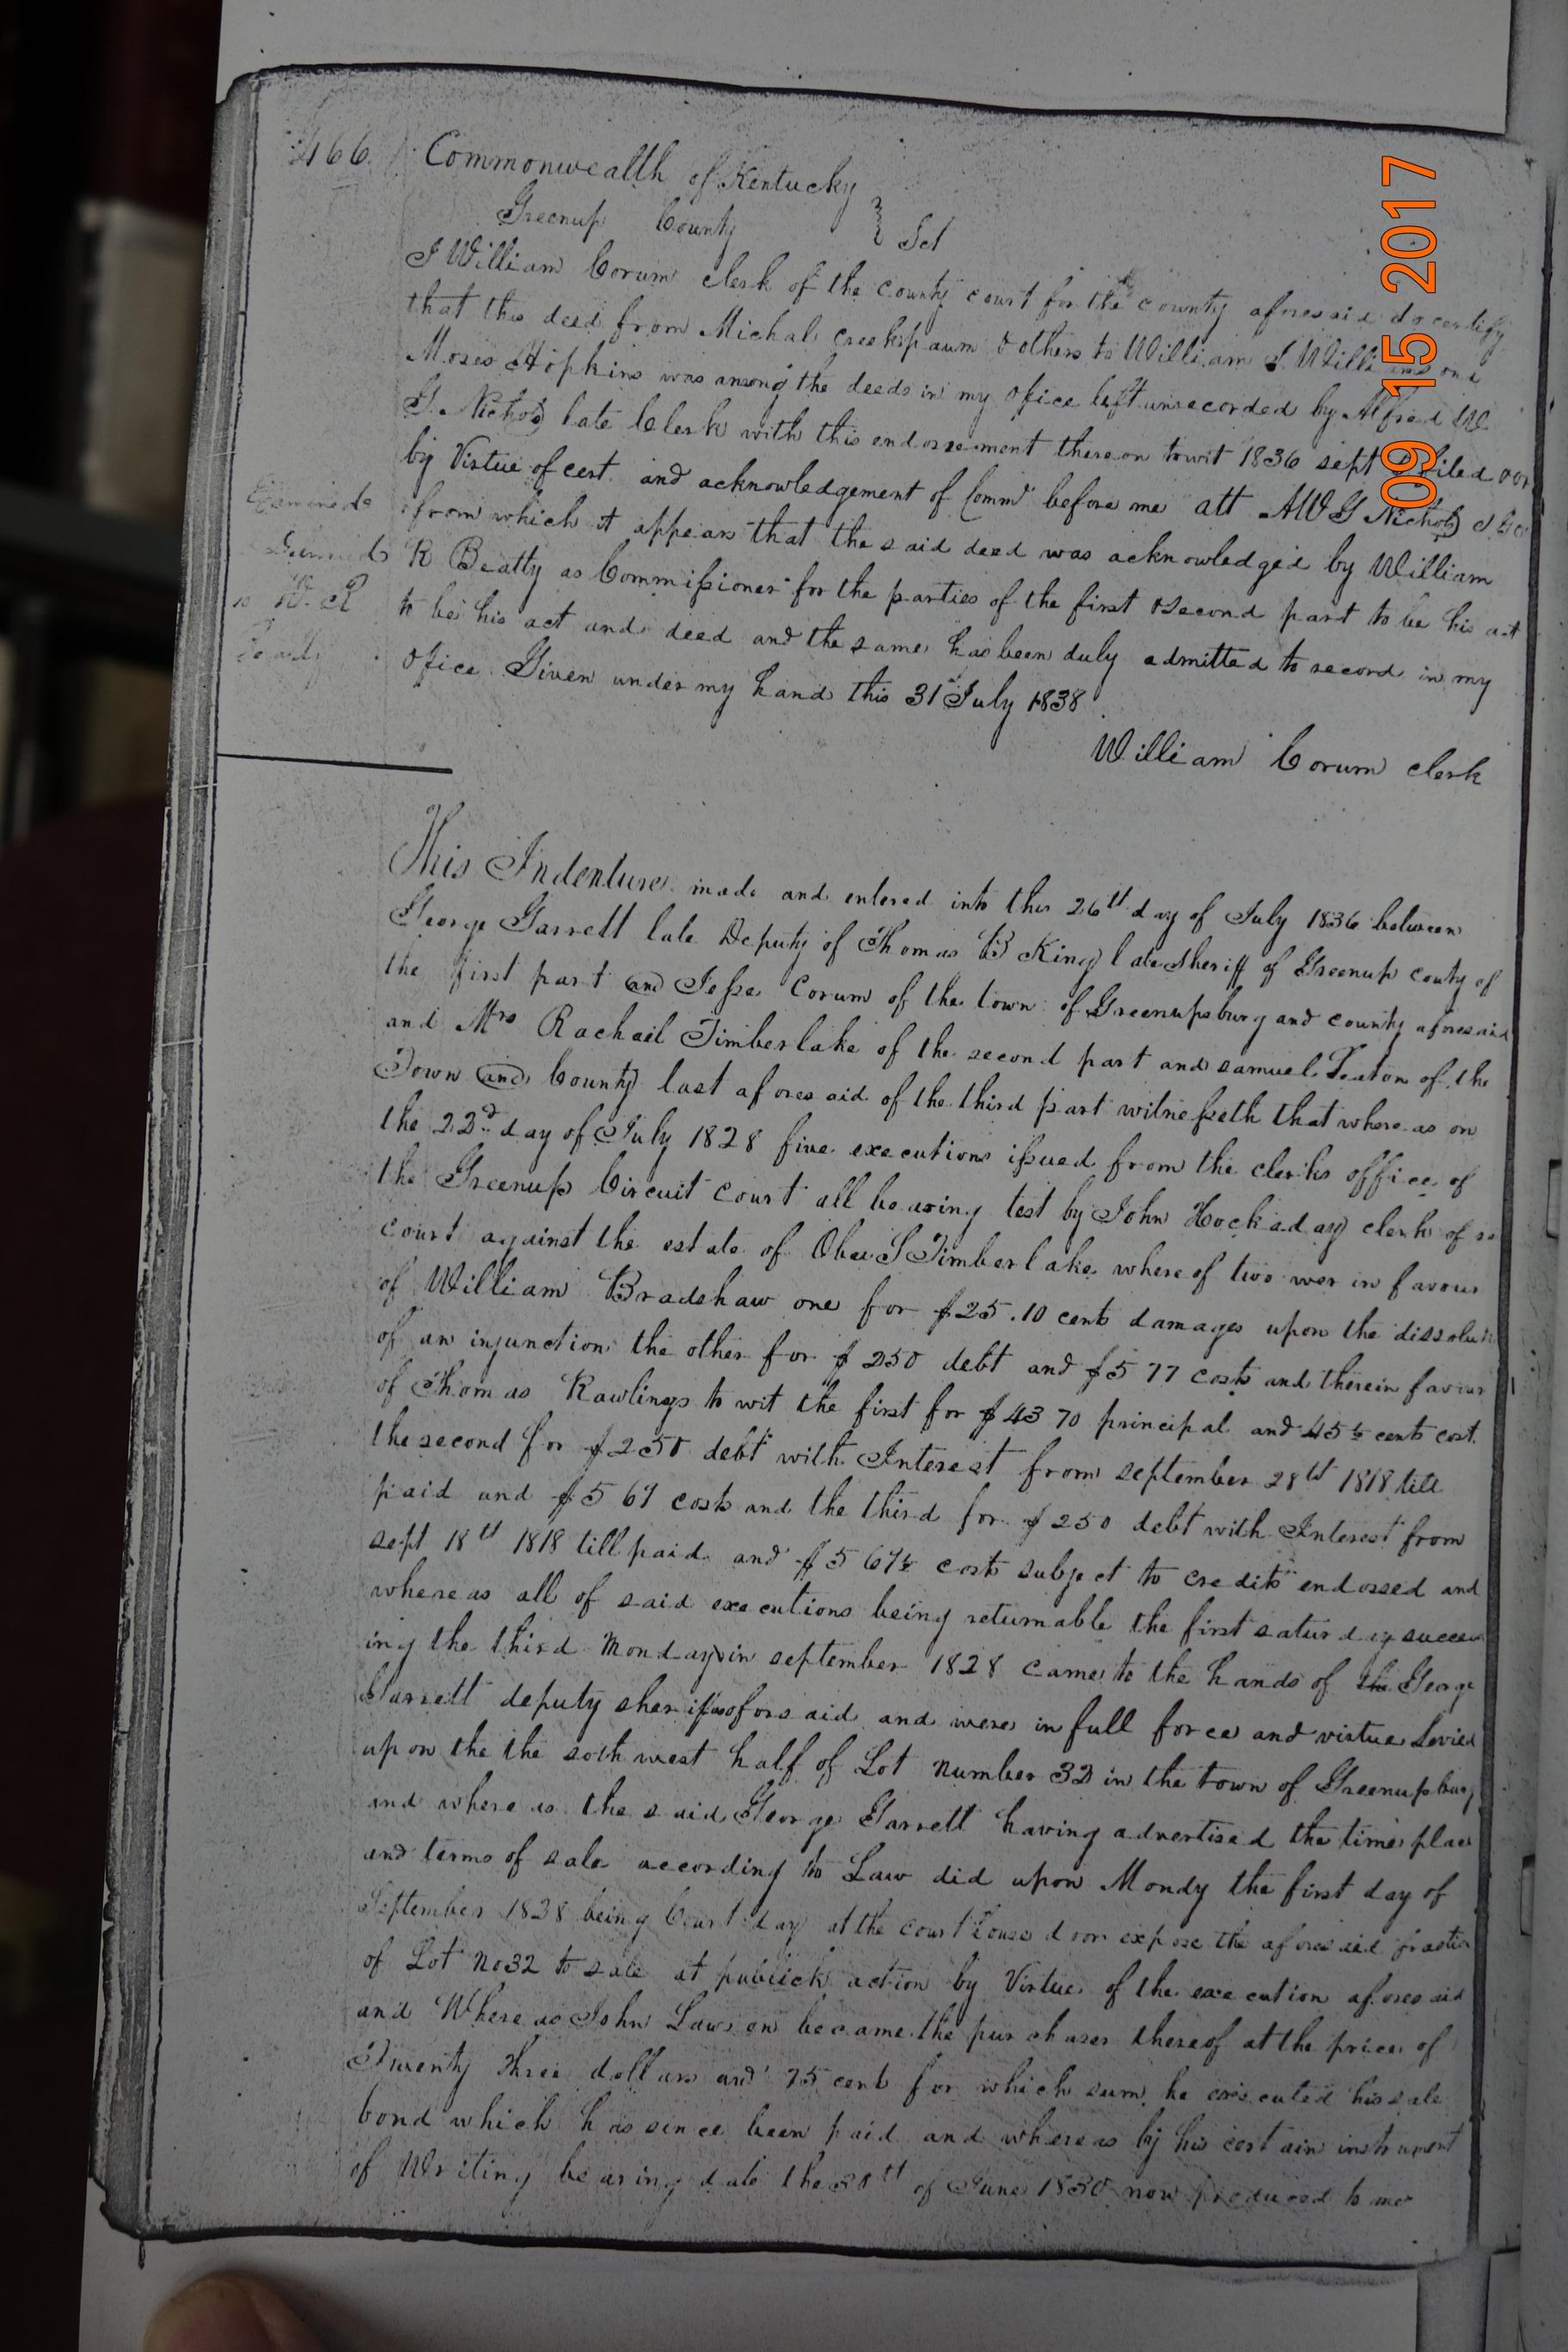 466. Commonwealth of Kentucky
Greenup County } Sct
I William Corum clerk of the county court for the county aforesaid do certify
that this deed from Michal creekspaum & others to William S Williams one
Moses Hopkins was among the deeds in my office left unrecorded by Alfred W
G. Nichols late Clerk with this endorsement thereon towit 1836 sept filed
by Virtue of cert. and acknowledgement of Comm before me att AWG Nichols
from which it appears that the said deed was acknowledged by William
R Beatty as Commissioner for the parties of the first & second part to be his act
to be his act and deed and the same has been duly admitted to record in my
office Given under my hand this 31st July 1838
William Corum clerk
Examined
W. R
This Indenture made and entered into this 26th day of July 1836 between
George Garrett late Deputy of Thomas B King late Sheriff of Greenup couty of
the first part and Jesse Corum of the town of Greenupsburg and county aforesaid
and Mrs Rachael Timberlake of the second part and samuel Seaton of the
Town and County last aforesaid of the third part witnesseth that where as on
the 22nd day of July 1828 five executions issued from the clerks office of
the Greenup Circuit Court all bearing test by John Hockaday clerk of
court against the estate of Obed S Timberlake where of two wer in favour
of William Bradshaw one for $25.10 cents damages upon the dissolut
of an injunction the other for $250 debt and $5 77 costs and therein favour
of Thomas Rawlings to wit the first for $43 70 principal and 45½ cents cost
the second for $250 debt with Interest from september 28th 1818 till
paid and $5 69 costs and the third for $250 debt with Interest from
sept 18th 1818 till paid and $5 69½ costs subject to credits endorsed and
whereas all of said executions being returnable the first saturday succeed
ing the third Monday in september 1828 came to the hands of the George
Garrett deputy sheriff as afors aid and were in full force and virtue Levied
upon the the soth west half of Lot number 32 in the town of Greenupsburg
and where as the said George Garrett having advertised the time place
and terms of sale according to Law did upon Mondy the first day of
September 1828 being Court day at the court house door expose the aforesaid fraction
of Lot no 32 to sale at publick action by Virtue of the execution aforesaid
and Where as John Lawson became the purchaser thereof at the price of
Twenty three dollars and 75 cents for which sum he executed his sale
bond which has since been paid and whereas by his certain instrument
of Writing bearing date the 30th of June 1830 now produced to me
09 15 2017